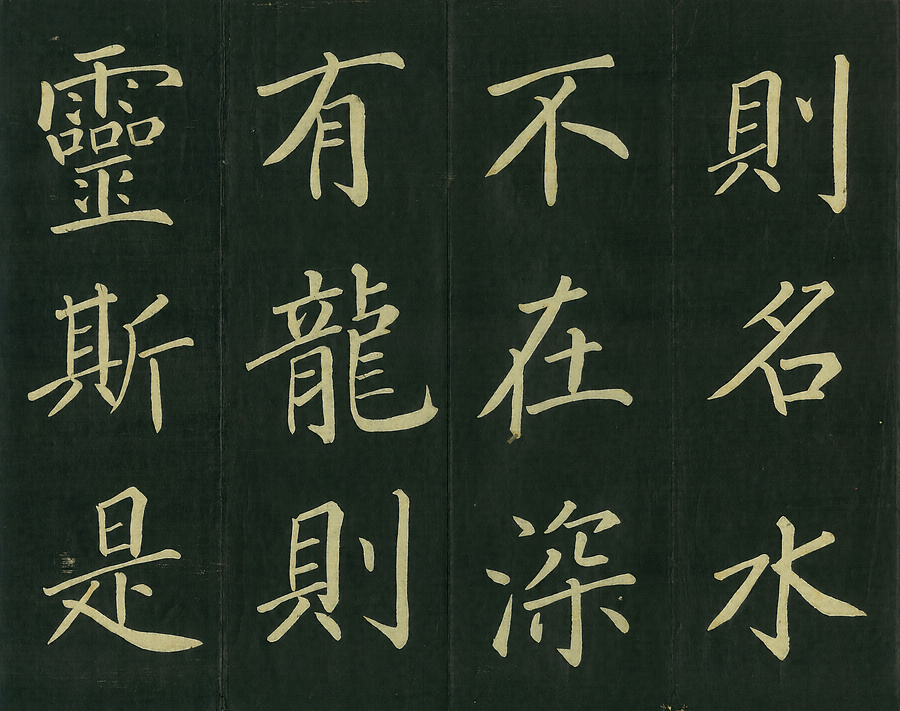 則名水
不在深
有龍則
靈斯是